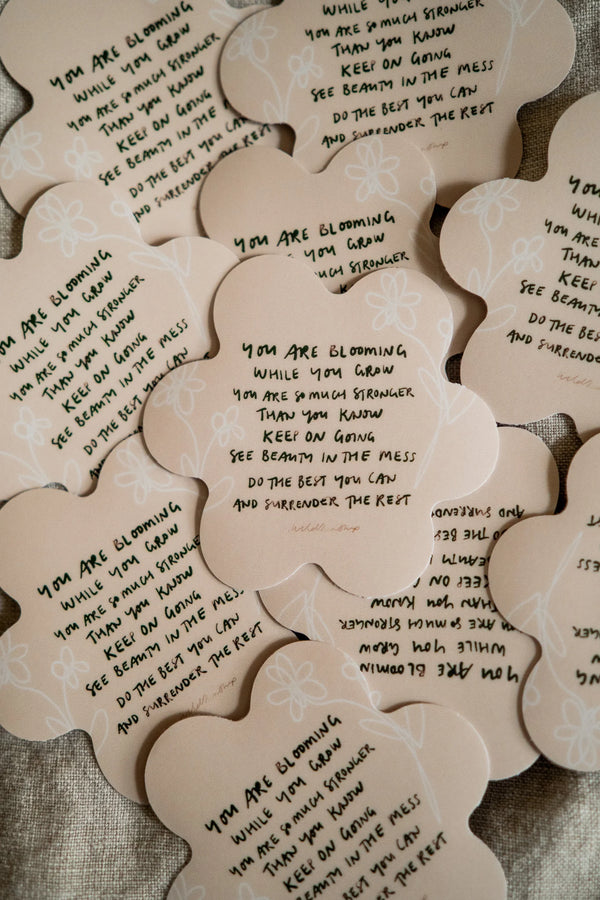 YOU ARE BLOOMING
WHILE YOU GROW
YOU ARE SO MUCH STRONGER
THAN YOU KNOW
KEEP ON GOING
SEE BEAUTY IN THE MESS
DO THE BEST YOU CAN
AND SURRENDER THE REST
WHILE YOU GROW
YOU ARE SO MUCH STRONGER
THAN YOU KNOW
KEEP ON GOING
SEE BEAUTY IN THE MESS
DO THE BEST YOU CAN
AND SURRENDER THE REST
YOU ARE BLOOMING
YOU GROW
MUCH STRONGER
YOU
THAN
KEEP
SEE BEAUTY
DO THE
YOU ARE BLOOMING
WHILE YOU GROW
YOU ARE SO MUCH STRONGER
THAN YOU KNOW
KEEP ON GOING
SEE BEAUTY IN THE MESS
DO THE BEST YOU CAN
YOU ARE BLOOMING
WHILE YOU GROW
YOU ARE SO MUCH STRONGER
THAN YOU KNOW
KEEP ON GOING
SEE BEAUTY IN THE MESS
DO THE BEST YOU CAN
AND SURRENDER THE REST
YOU ARE BLOOMING
WHILE YOU GROW
YOU ARE SO MUCH STRONGER
THAN YOU KNOW
KEEP ON GOING
SEE BEAUTY IN THE
DO THE BEST YOU CAN
AND SURRENDER THE REST
YOU ARE
WHILE YOU GROW
ARE SO MUCH STRONGER
THAN YOU KNOW
KEEP ON
THE
AND
YOU ARE BLOOMING
WHILE YOU GROW
YOU ARE SO MUCH STRONGER
THAN YOU KNOW
KEEP ON GOING
BEAUTY IN THE MESS
THE BEST YOU CAN
SURRENDER THE REST